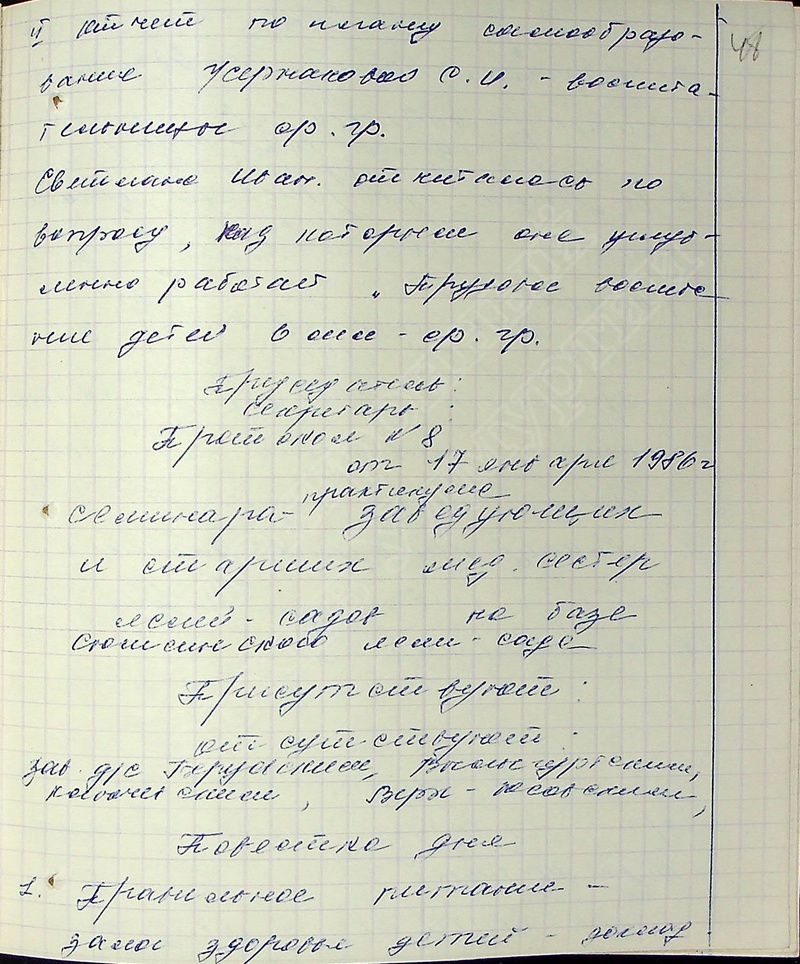 48
II Отчет по плану самообразо-
вание О.И. - воспита-
тельницы ср. гр.
Светлана Иван. отчиталась по
вопросу, над которым она углуб-
ленно работает „Трудовое воспита
ние детей в мл - ср. гр.
Председатель:
Секретарь:
Протокол N 8
от 17 января 1986 г
практикума
Семинара- заведующих
и старших мед. сестер
ясли-садов на базе
Сюмсинского ясли-сада
Присутствуют:
отсутствуют:
Зав д/с
Повестка дня
1. Правильное питание -
залог здоровья детей - доклад